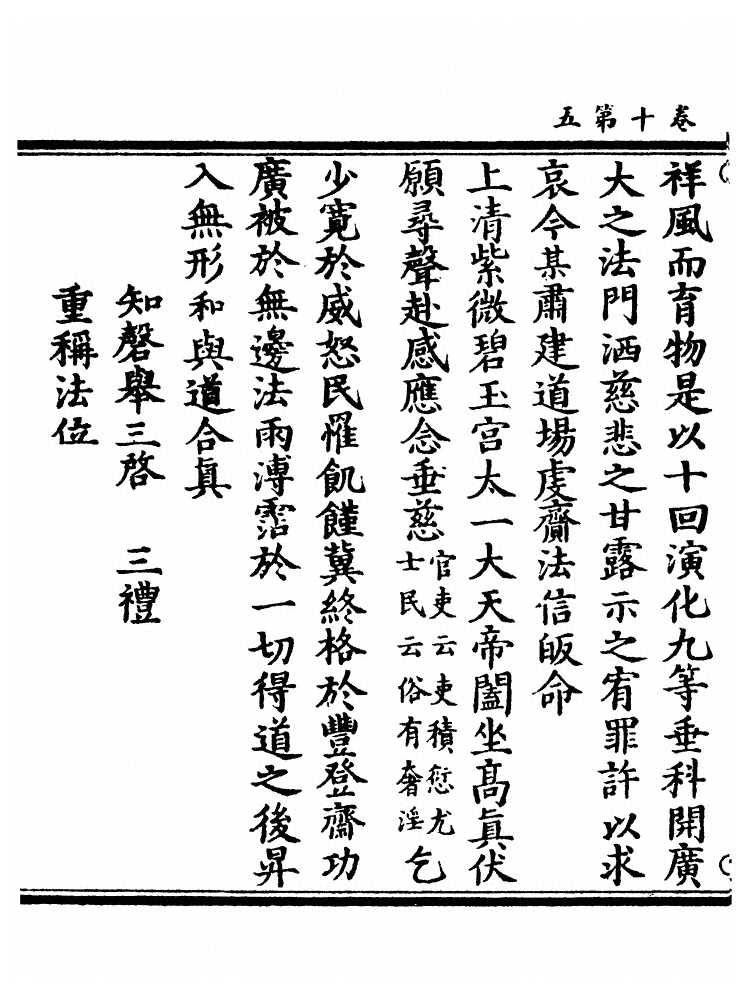 卷十第五
祥風而育物是以十回演化九等垂科開廣
大之法門洒慈悲之甘露示之宥罪許以求
哀今某肅建道場虔齎法信皈命
上清紫微碧玉宮太一大天帝闔坐高眞伏
願尋聲赴感應念垂慈官吏云吏積愆尤士民云俗有奢淫乞
少寬於威怒民罹飢饉冀終格於豐登齋功
廣被於無邊法雨溥霑於一切得道之後昇
入無形和與道合眞
知磬舉三啓　三禮
重稱法位